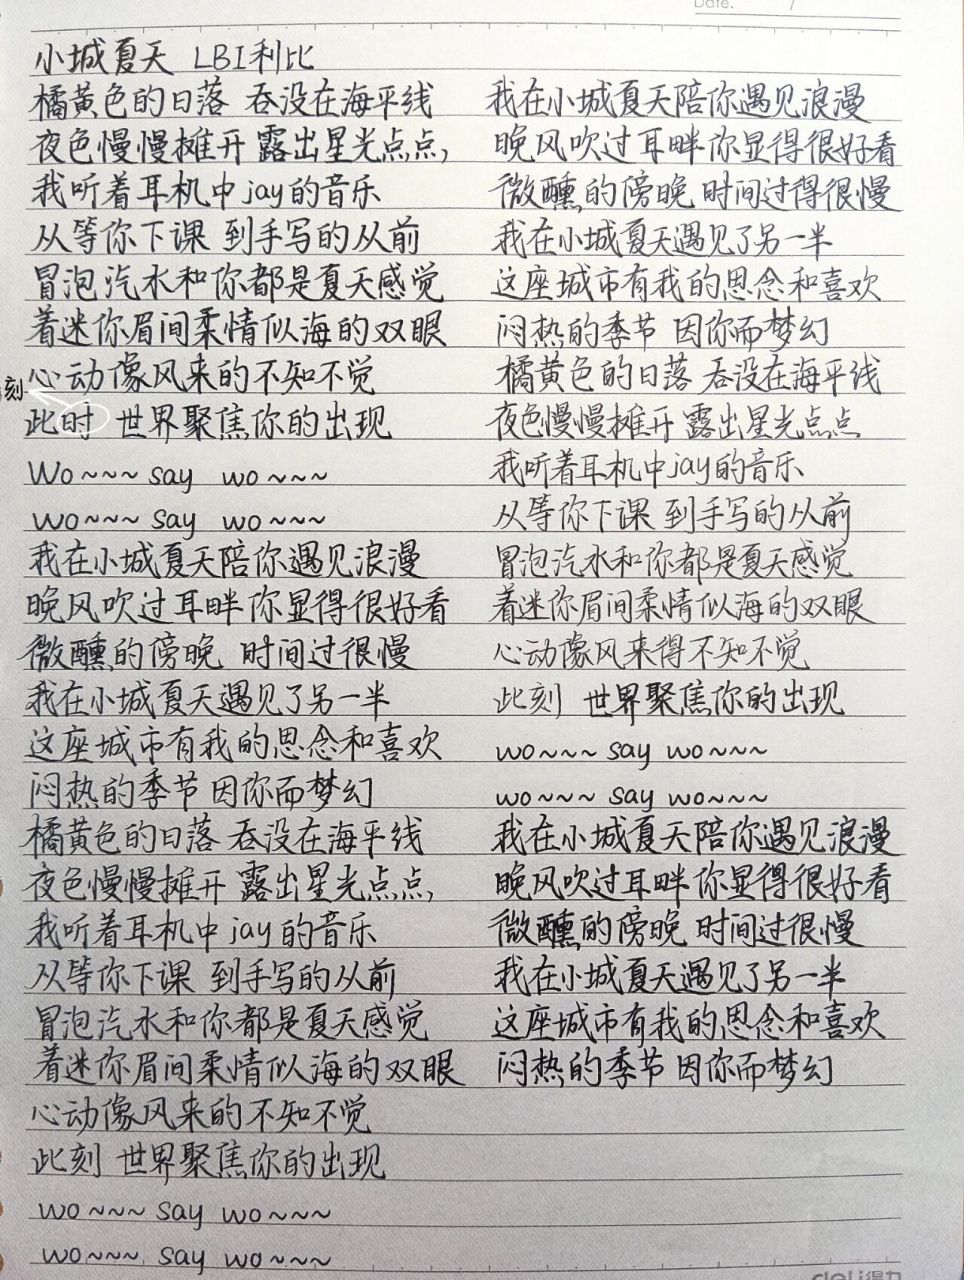 Date. /
小城夏天 LBI利比
橘黄色的日落 吞没在海平线
夜色慢慢摊开 露出星光点点,
我听着耳机中jay的音乐
从等你下课 到手写的从前
冒泡汽水和你都是夏天感觉
着迷你眉间柔情似海的双眼
心动像风来的不知不觉
刻
此时 世界聚焦你的出现
Wo~~~ say wo~~~
wo~~~ say wo~~~
我在小城夏天陪你遇见浪漫
晚风吹过耳畔你显得很好看
微醺的傍晚 时间过很慢
我在小城夏天遇见了另一半
这座城市有我的思念和喜欢
闷热的季节 因你而梦幻
橘黄色的日落 吞没在海平线
夜色慢慢摊开 露出星光点点,
我听着耳机中jay的音乐
从等你下课 到手写的从前
冒泡汽水和你都是夏天感觉
着迷你眉间柔情似海的双眼
心动像风来的不知不觉
此刻 世界聚焦你的出现
wo~~~ say wo~~~
wo~~~ say wo~~~
我在小城夏天陪你遇见浪漫
晚风吹过耳畔你显得很好看
微醺的傍晚 时间过得很慢
我在小城夏天遇见了另一半
这座城市有我的思念和喜欢
闷热的季节 因你而梦幻
橘黄色的日落 吞没在海平线
夜色慢慢摊开 露出星光点点
我听着耳机中jay的音乐
从等你下课 到手写的从前
冒泡汽水和你都是夏天感觉
着迷你眉间柔情似海的双眼
心动像风来得不知不觉
此刻 世界聚焦你的出现
wo~~~ say wo~~~
wo~~~ say wo~~~
我在小城夏天陪你遇见浪漫
晚风吹过耳畔你显得很好看
微醺的傍晚 时间过很慢
我在小城夏天遇见了另一半
这座城市有我的思念和喜欢
闷热的季节 因你而梦幻
deli得力